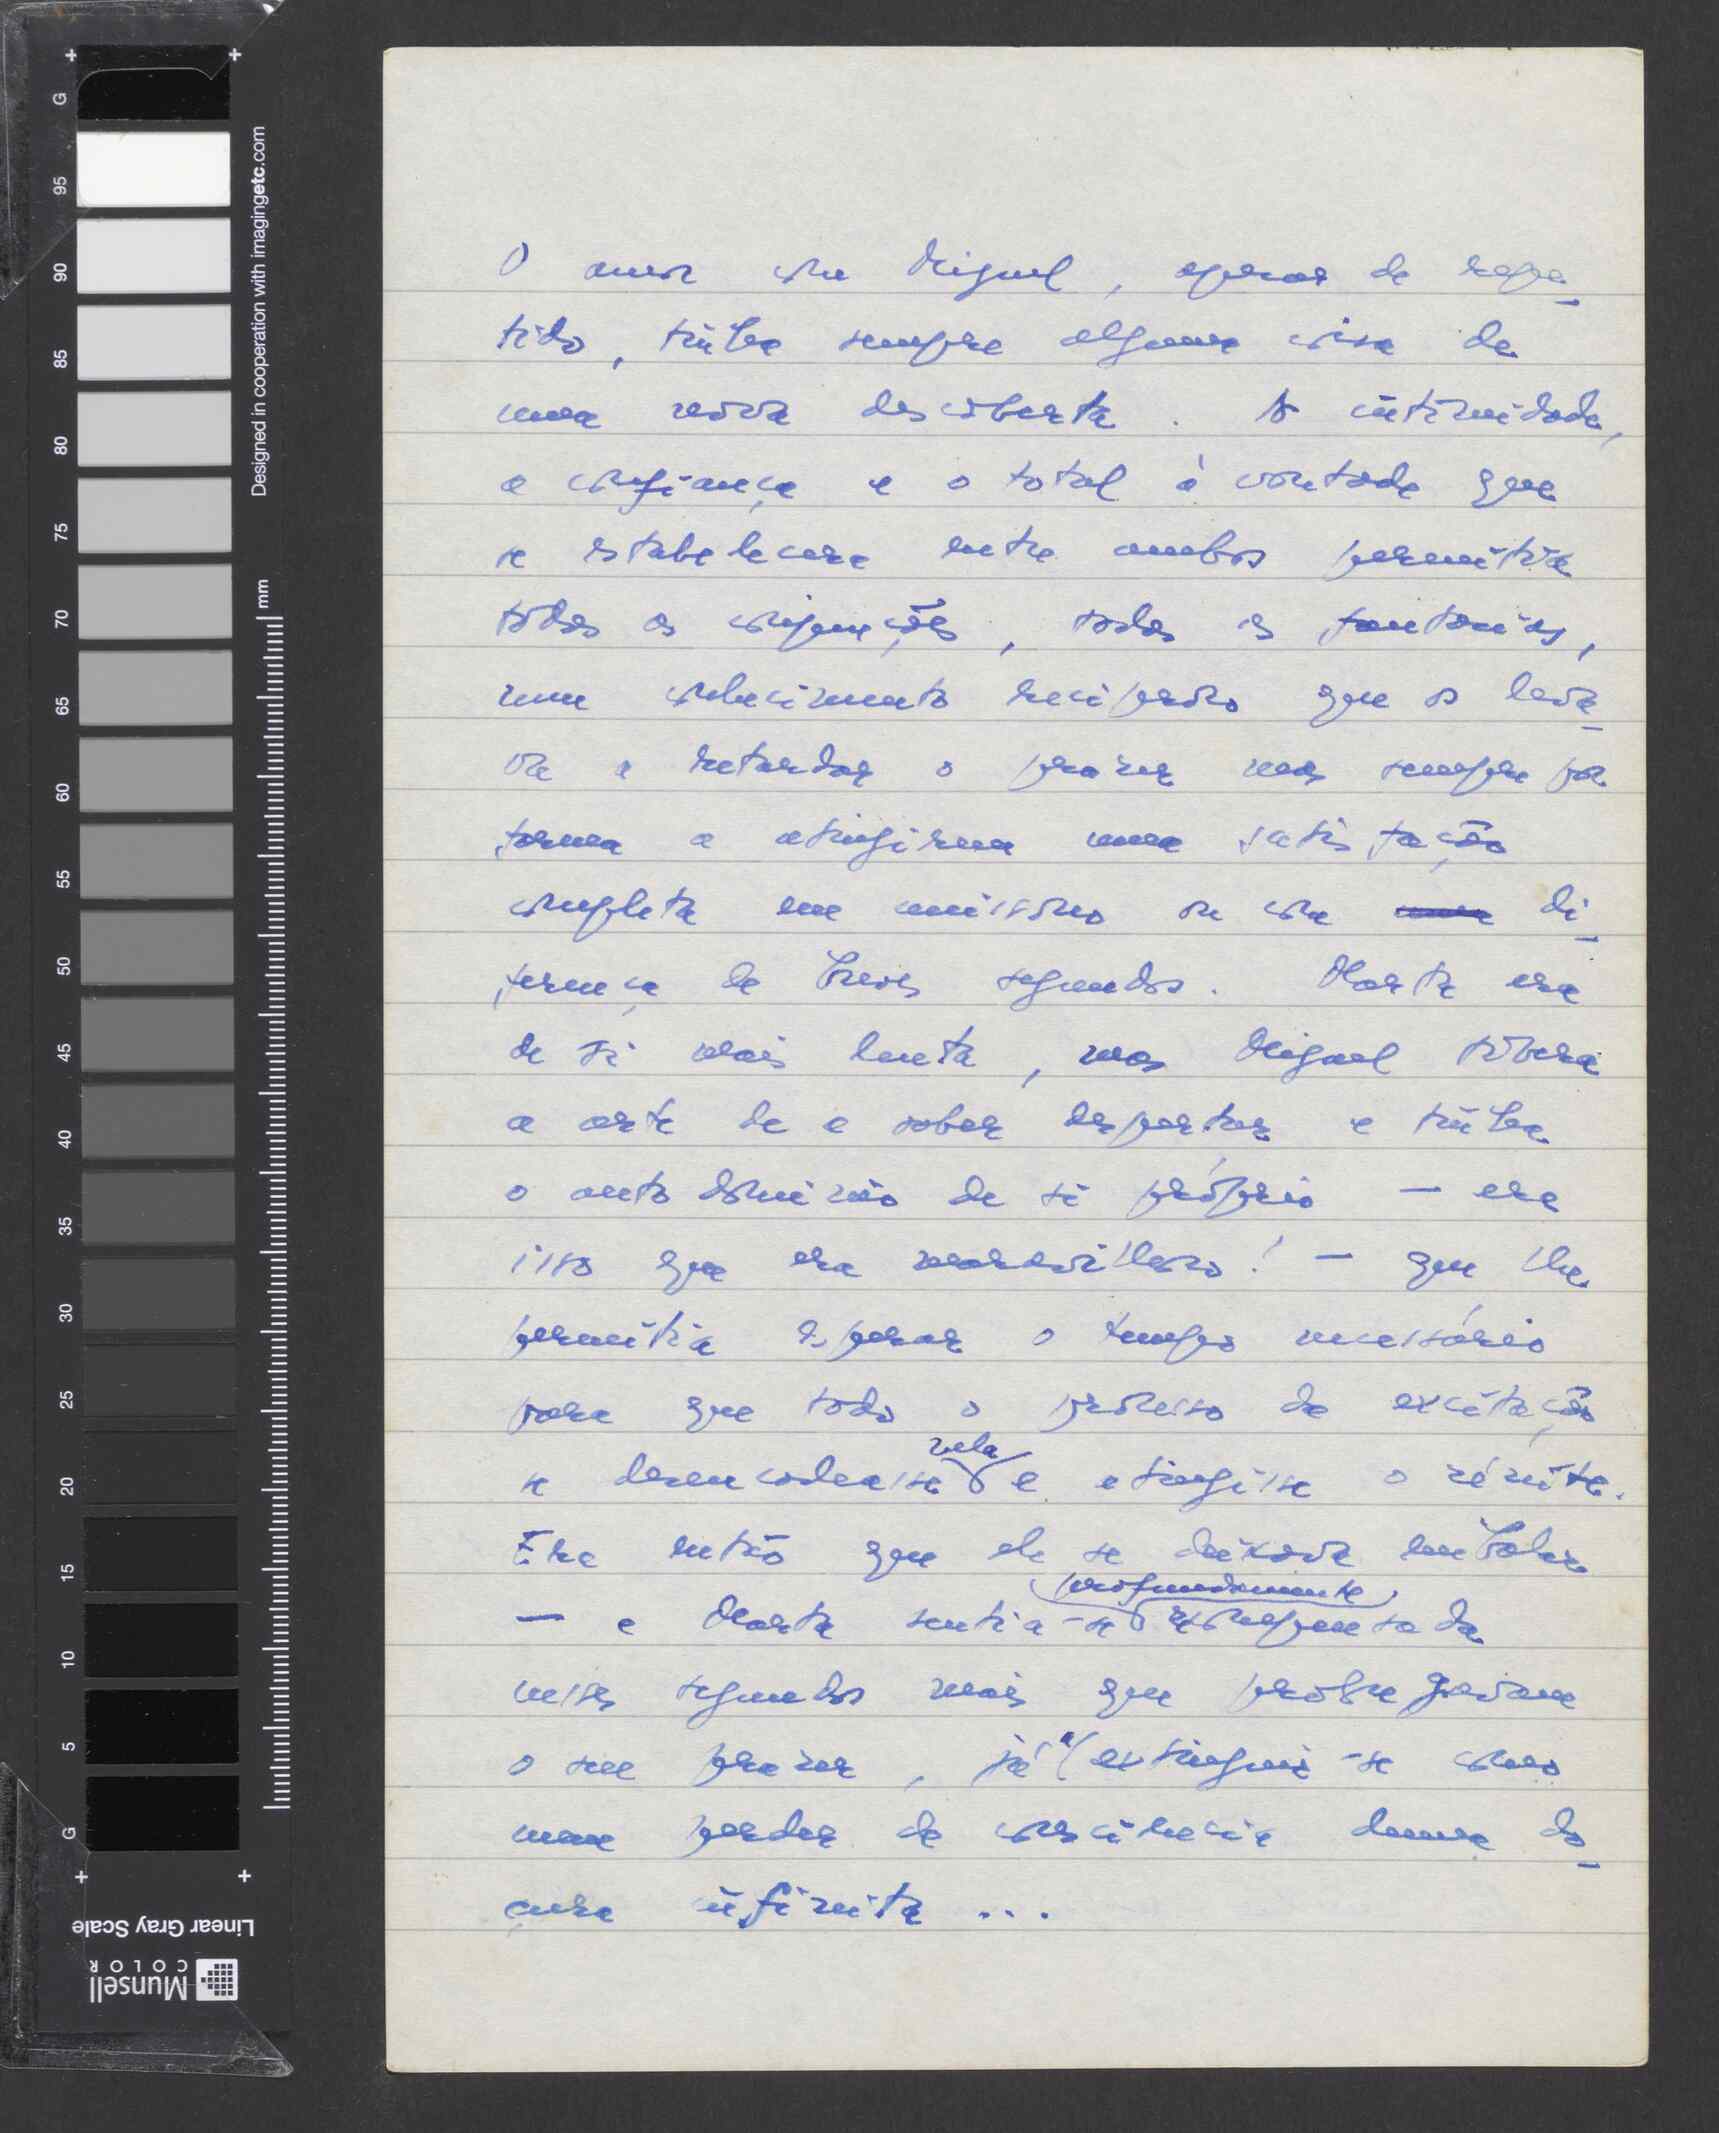 O amor com Miguel, apesar de repe-
tido, tinha sempre alguma coisa de
uma nova descoberta. A intimidade,
a confiança e o total à vontade que
se estabelecera entre ambos permitia
todas as conjunções, todas as fantasias,
num conhecimento recíproco que os leva-
va a retardar o prazer mas sempre por
forma a atingirem uma satisfação
completa em uníssono ou com uma di-
ferença de breves segundos. Marta era
de si mais lenta, mas Miguel tivera
a arte de a saber despertar e tinha
o auto domínio de si próprio — era
isso que era maravilhoso! — que lhe
permitia esperar o tempo necessário
para que todo o processo de excitação
nela
se desencadeasse e atingisse o zénite.
Era então que ele se deixava embalar
profundamente
— e Marta sentia-se recompensada
nesses segundos mais que prolongavam
o seu prazer, já a extinguir-se como
uma perda de consciência duma do-
çura infinita...
Designed in cooperation with imagingetc.com
mm
G 95 90 85 80 75 70 65 60 55 50 45 40 35 30 25 20 15 10 5 G
Linear Gray Scale
Munsell
COLOR